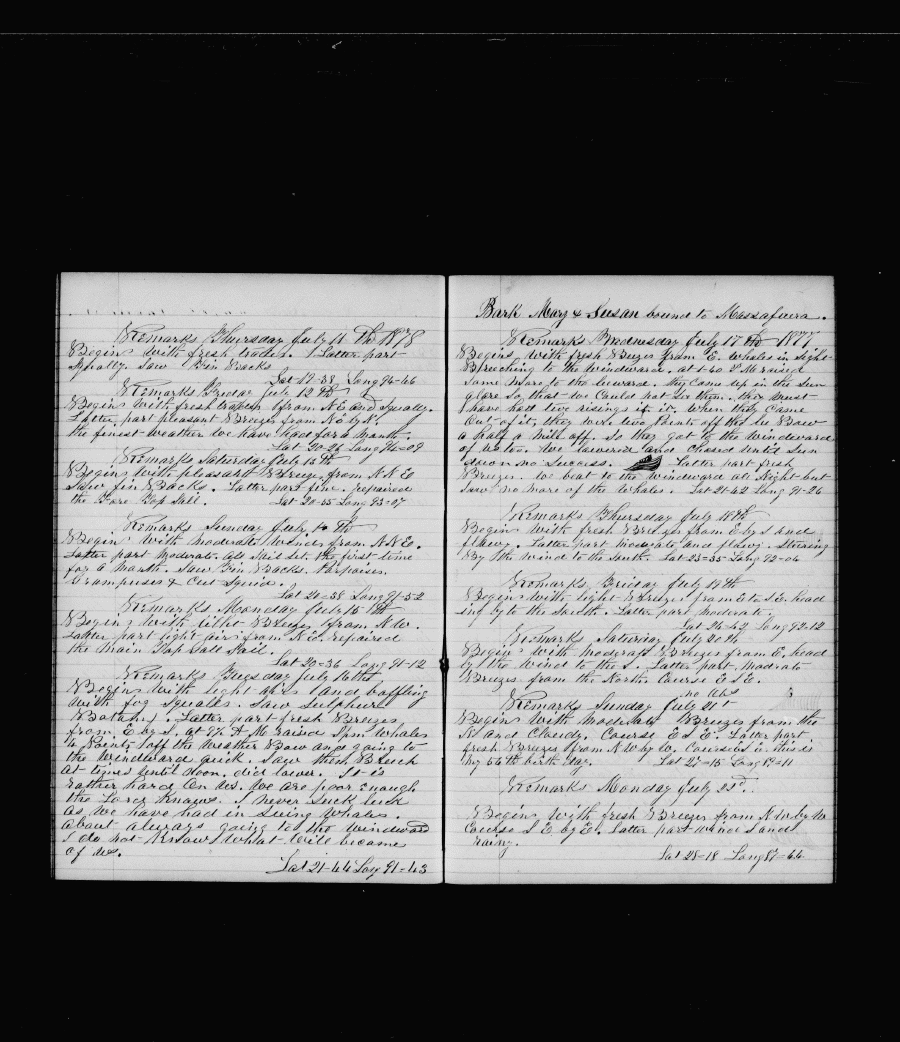 Remarks Thursday July 11 Th 1878
Begins with fresh trades. Latter part
squally. Saw Fin Backs
Lat 19-38 Long 96-46
Remarks Friday July 12 th
Begins with fresh trades from N.E. and squally.
Latter part pleasant Breezes from N.
the finest weather we have had for a month.
Lat 20-26 Long
Remarks Saturday July 13 th
Begins with pleasant Breeze from N N E
Saw fin Backs. Latter part fine. repaired
the Fore Top Sail. Lat 20-55 Long 93-07
Remarks Sunday July 14 th
Begins with moderate Winds from N.N.E.
Latter part moderate all Sail Set. the first time
for a month. Saw Fin Backs. Porpoises.
Grampuses & Cut Squid.
Lat 20-38 Long 91-52
Remarks Monday July 15 th
Begins with light Breezes from N.W.
Latter part light airs from N.E. repaired
the Main Top Gall Sail.
Lat 20-36 Long 91-12
Remarks Tuesday July 16 th
Begins with light airs and baffling
with fog Squalls. Saw Sulphur
Bottaks. Latter part fresh Breezes
from E. by S. at A M raised Spm Whales
4 Points off the Weather Bow and going to
the Windward quick. Saw them Breech
at times until Noon. did lower. It is
rather hard On us. We are poor enough
the Lord knows. I never Such luck
as we have had in Seeing Whales.
About always going to the Windward
I do not know What Will become
of us.
Lat 21-44 Long 91-43
Bark Mary & Susan bound to Massafuera.
Remarks Wednesday July 17 th 1877
Begins with fresh Breezes from E. whales in sight
Breeching to the windward. at 1-40 P M raised
Some more to the leeward. they came up in the sun
glare so that we Could not See them. they must
have had two risings in it. When they came
Out of it, they were two Points off the lee Bow
a half a mile off. So they got to the windward
of us too. We lowered and Chased until Sun
down no Success. Latter part fresh
Breezes. We beat to the windward all Night but
Saw no more of the Whales. Lat 21-42 Long 91-26
Remarks Thursday July 18 th
Begins with fresh Breezes from E by S and
flawy. Latter part moderate and flawy. Steering
By the wind to the South. Lat 23-35 Long 92-04
Remarks Friday July 19 th
Begins with light Breezes from E to S E. head
ing by to the South. Latter part moderate.
Lat 24-42 Long 92-12
Remarks Saturday July 20 th
Begins with moderate Breezes from E. head
by the wind to the S. Latter part moderate
Breezes from the North. Course E S E.
no obs
Remarks Sunday July 21st
Begins with moderate Breezes from the
N and Cloudy. Course E S E. Latter part
fresh Breezes from N W by W. Course S E. this is
my 54th birth day. Lat 27-15 Long 89-11
Remarks Monday July 22d.
Begins with fresh Breezes from N W by W
Course S E by E. Latter part windy and
rainy.
Lat 28-18 Long 87-44